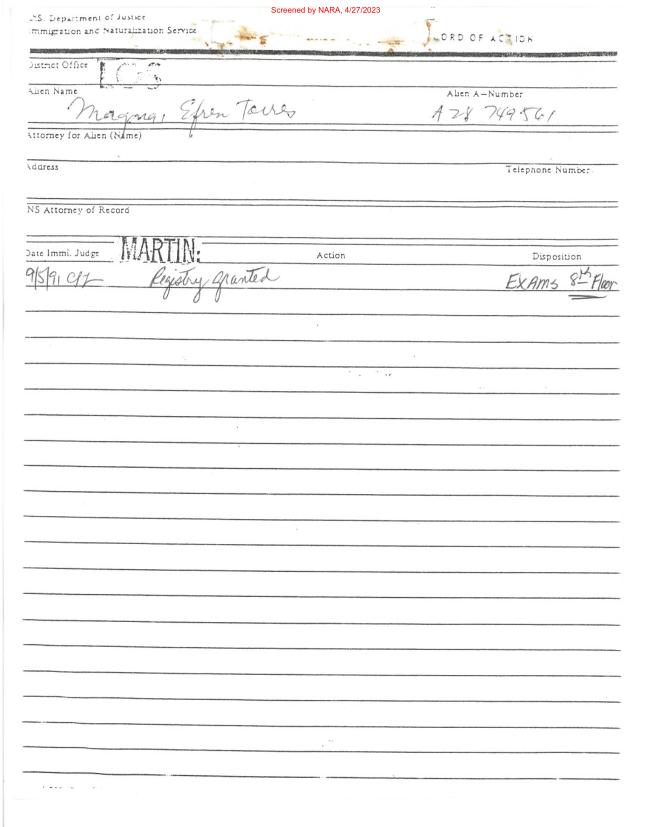 Screened by NARA, 4/27/2023
U.S. Department of Justice
Immigration and Naturalization Service
ORD OF ACTION
District Office
Alien Name Alien A-Number
Magana, Efren Torres A28 749-561
Attorney for Alien (Name)
Address Telephone Number
NS Attorney of Record
Date Immi. Judge MARTIN: Action Disposition
9/5/91 Registry granted EXAMS 8th Floor